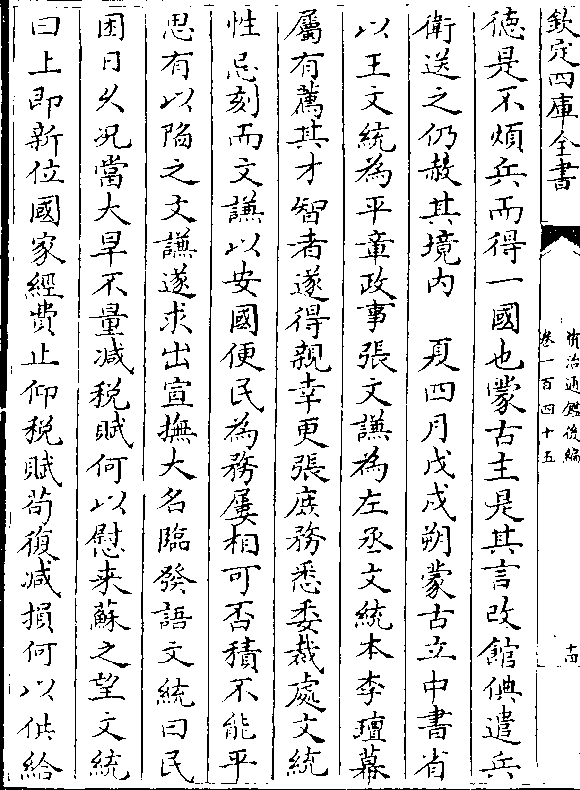 欽定四庫全書
資治通鑑後編
卷一百四十五
十四
德是不煩兵而得一國也蒙古主是其言改館倎遣兵
衛送之仍赦其境内　夏四月戊戌朔蒙古立中書省
以王文統為平章政事張文謙為左丞文統本李璮幕
屬有薦其才智者遂得親幸更張庶務悉委裁處文統
性忌刻而文謙以安國便民為務屢相可否積不能平
思有以陷之文謙遂求出宣撫大名臨發語文統曰民
困日久况當大旱不量減税賦何以慰来蘇之望文統
曰上即新位國家經費止仰税賦苟復減損何以供給